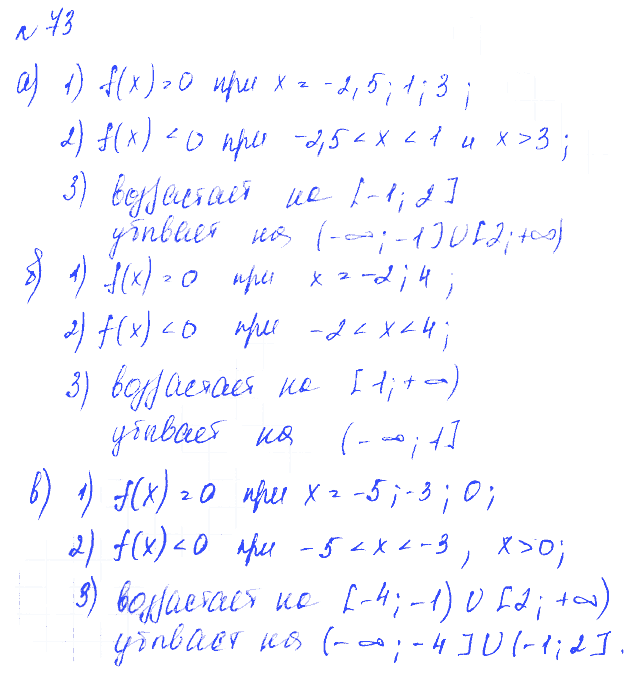 № 73
а) 1) f(x)=0 при x = -2,5; 1; 3;
2) f(x)<0 при -2,5 < x < 1 и x>3;
3) возрастает на [-1; 2]
убывает на (-∞; -1]∪[2; +∞)
б) 1) f(x)=0 при x = -2; 4;
2) f(x)<0 при -2 < x < 4;
3) возрастает на [1; +∞)
убывает на (-∞; 1]
в) 1) f(x)=0 при x = -5; -3; 0;
2) f(x)<0 при -5 < x < -3, x>0;
3) возрастает на [-4; -1) ∪ [2; +∞)
убывает на (-∞; -4]∪(-1; 2].